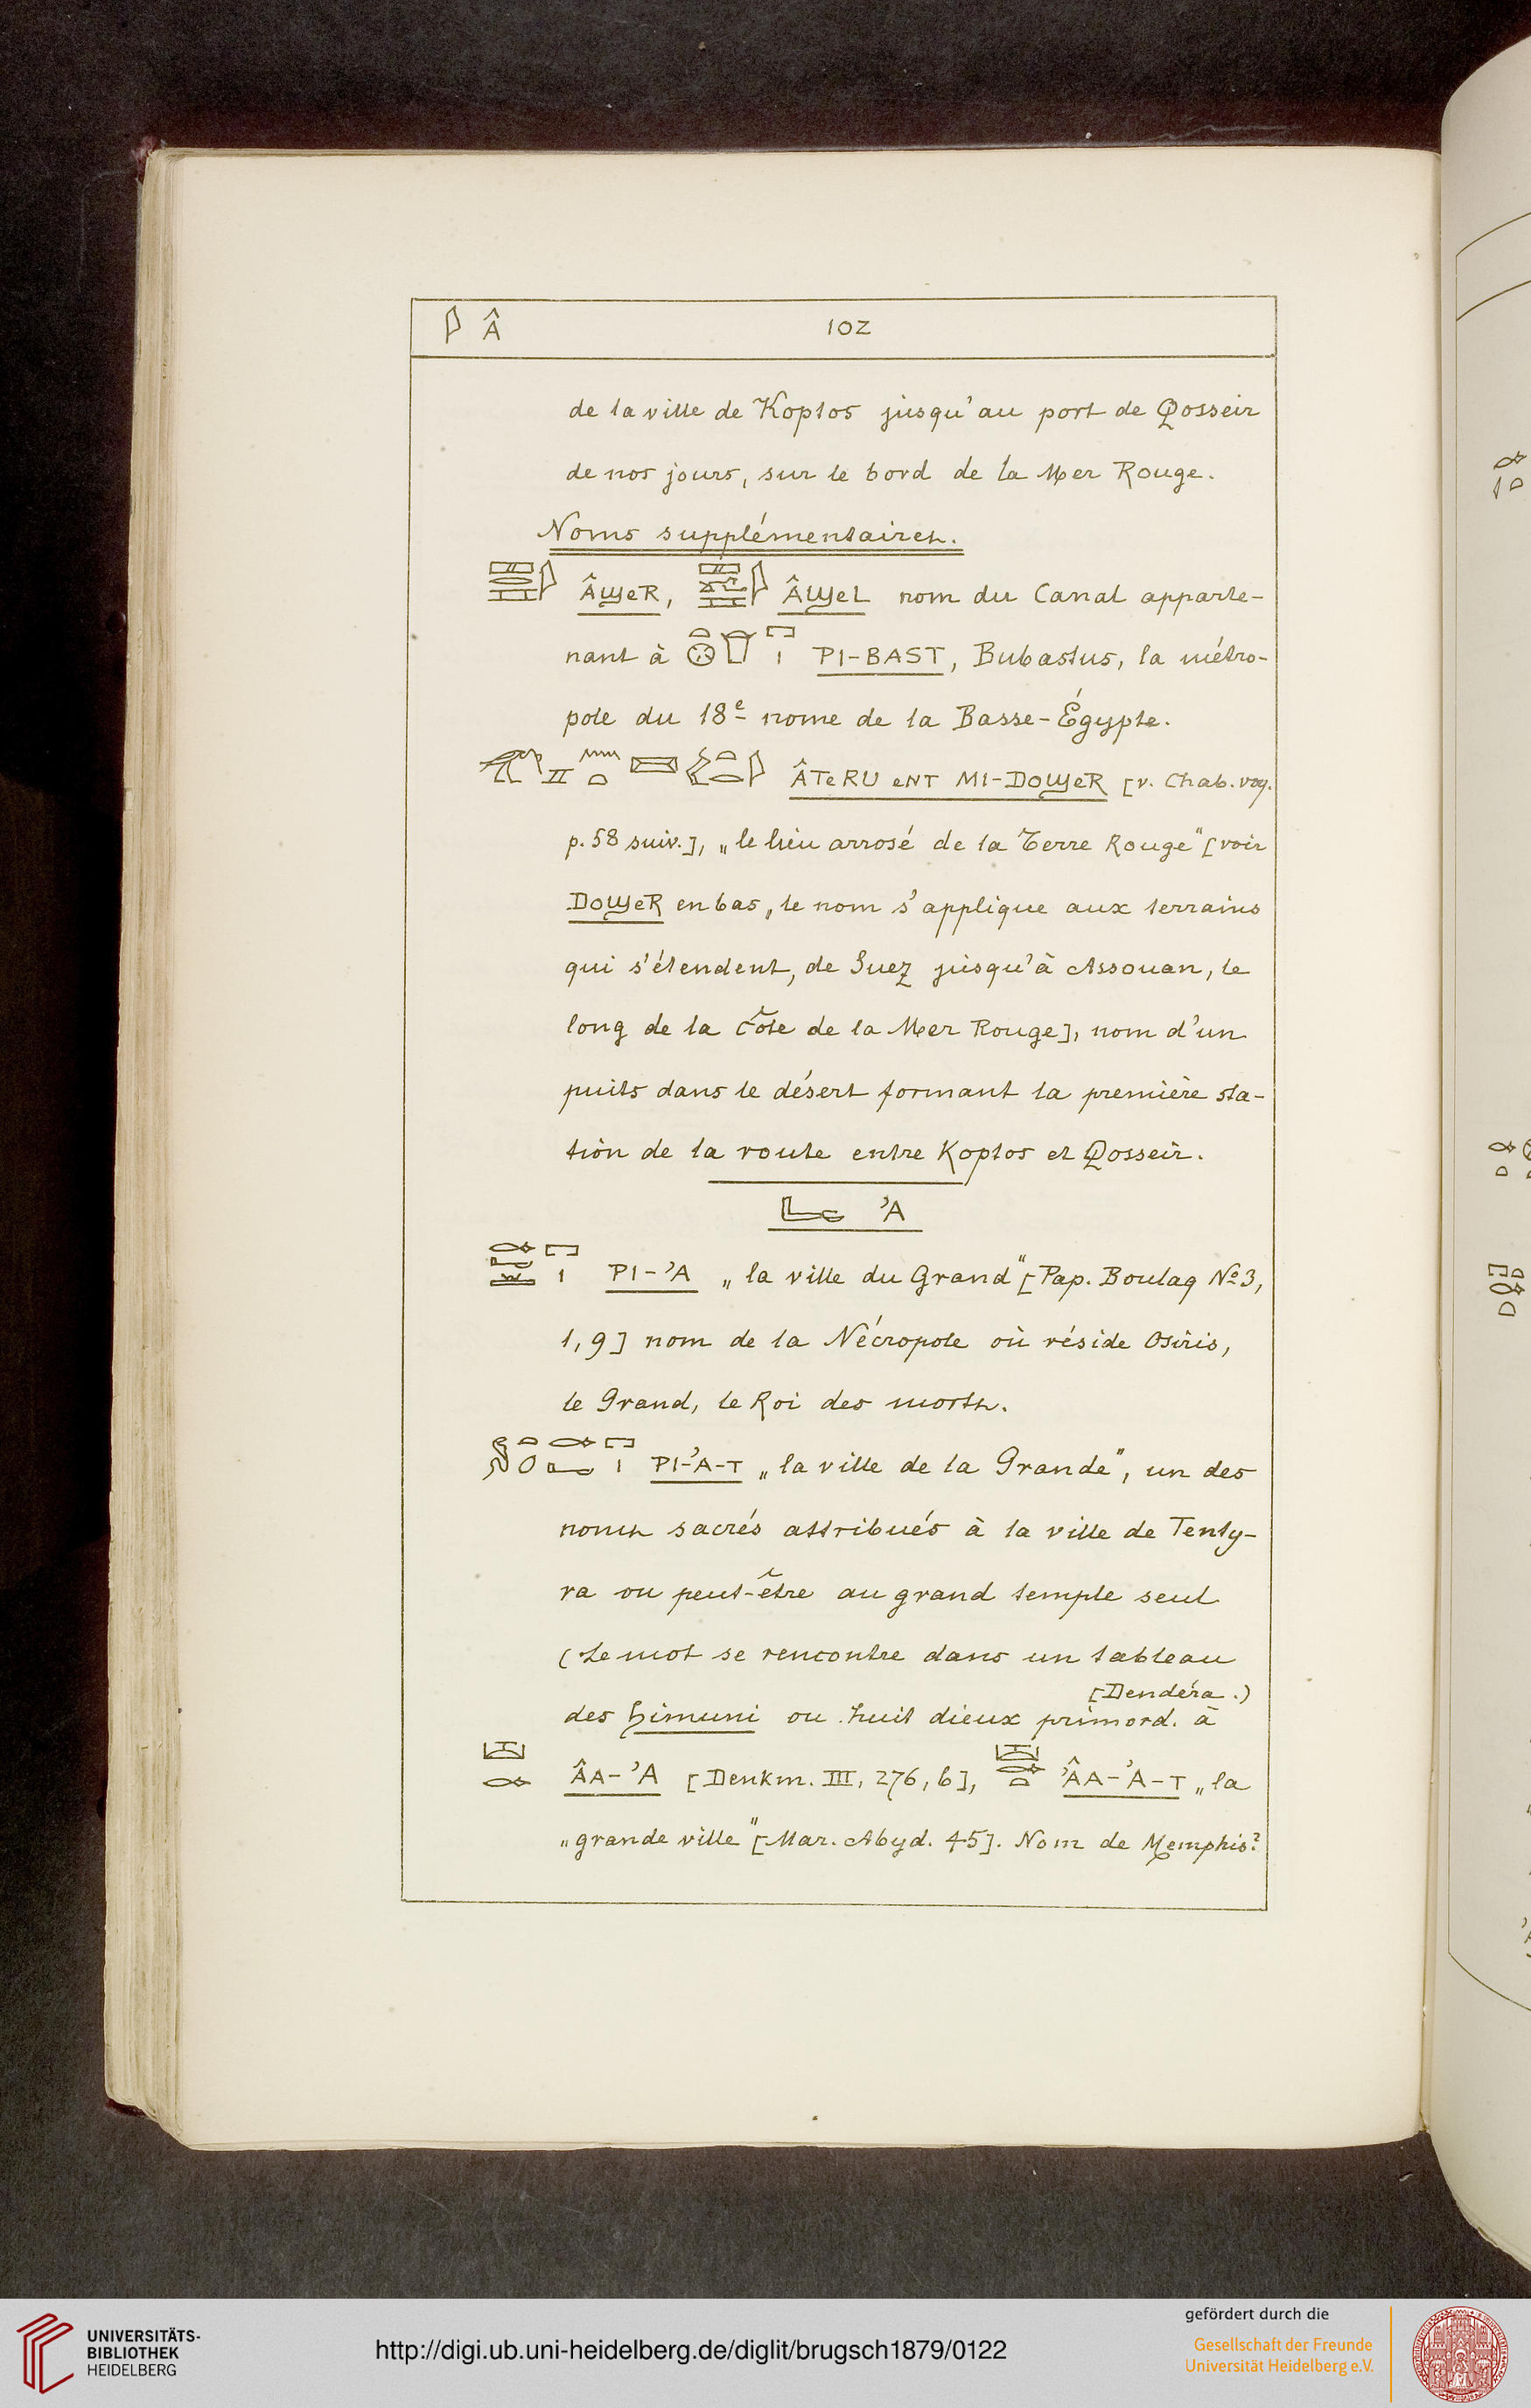 Â 102
de la ville de Koptos jusqu'au port de Qosseir
de nos jours, sur le bord de la Mer Rouge.
Noms supplémentaires.
ÂɯyeR, ÂɯyeL nom du Canal apparte-
nant à PI-BAST, Bubastus, la métro-
pole du 18e nome de la Basse-Égypte.
ÂTeRU eNT MI-DOɯyeR [v. Chab. voy.
p. 58 suiv.], „le lieu arrosé de la Terre Rouge" [voir
DOɯyeR en bas, le nom s'applique aux terrains
qui s'étendent, de Suez jusqu'à Assouan, le
long de la côte de la Mer Rouge], nom d'un
puits dans le désert formant la première sta-
tion de la route entre Koptos et Qosseir.
'A
PI-'A „la ville du Grand" [Pap. Boulaq No 3,
1,9] nom de la Nécropole où réside Osiris,
le Grand, le Roi des morts.
PI-'A-T „la ville de la Grande", un des
noms sacrés attribués à la ville de Tenty-
ra ou peut-être au grand temple seul
(Le mot se rencontre dans un tableau
[Dendéra.)
des himuni ou huit dieux primord. à
ÂA-'A [Denkm. III, 276, b], 'ÂA-'A-T „la
„grande ville" [Mar. Abyd. 45]. Nom de Memphis?
UNIVERSITÄTS-
BIBLIOTHEK
HEIDELBERG
http://digi.ub.uni-heidelberg.de/diglit/brugsch1879/0122
gefördert durch die
Gesellschaft der Freunde
Universität Heidelberg e.V.